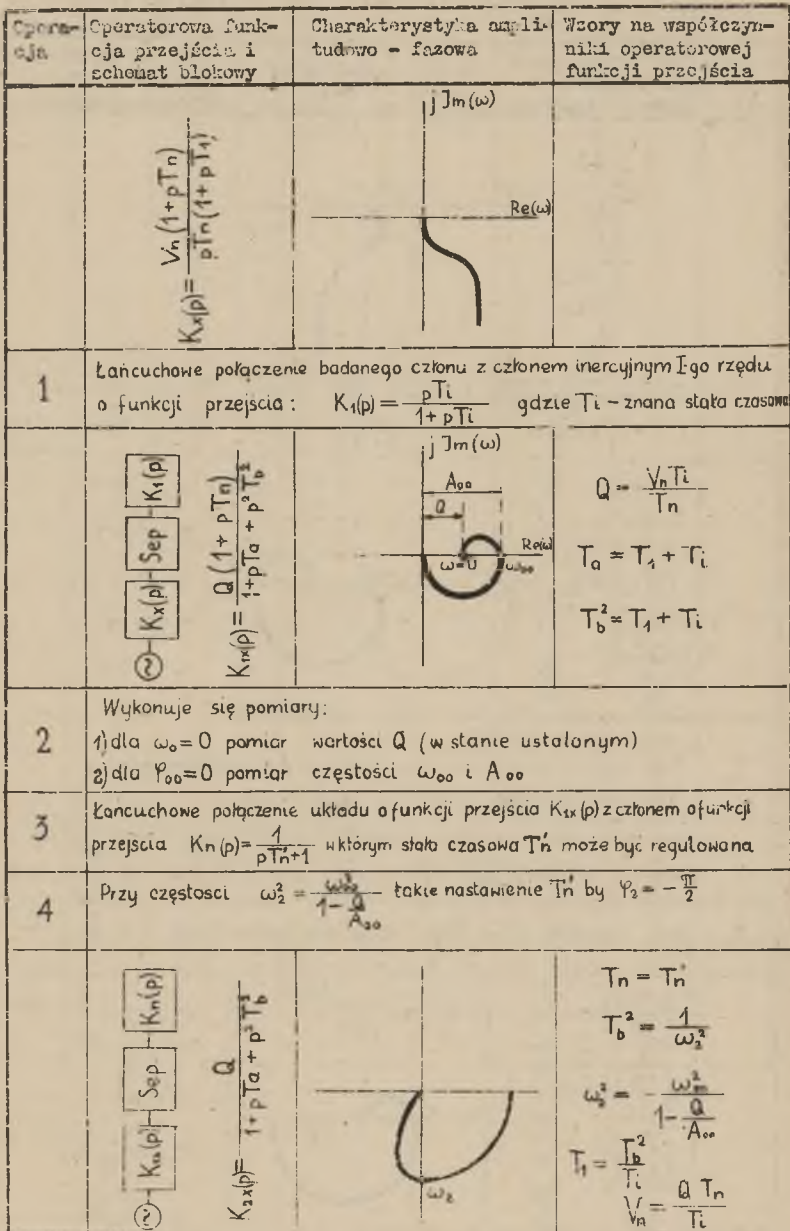 Opera-
cja
Operatorowa funk-
cja przejścia i
schemat blokowy
Charakterystyka ampli-
tudowo - fazowa
Wzory na współczyn-
niki operatorowej
funkcji przejścia
Kx(p)= Vn(1+pTn) / pTn(1+pT1)
j Jm(ω)
Re(ω)
1
Łańcuchowe połączenie badanego członu z członem inercyjnym I-go rzędu
o funkcji przejścia: K1(p) = pTi / 1+pTi gdzie Ti - znana stała czasowa
Kx(p) Sep K1(p)
K1x(p)= Q(1+pTn) / 1+pTa+p²Tb²
j Jm(ω)
A∞
Q
Re(ω)
ω=0
ω∞
Q = VnTi / Tn
Ta = T1 + Ti
Tb² = T1 + Ti
2
Wykonuje się pomiary:
1) dla ω0=0 pomiar wartości Q (w stanie ustalonym)
2) dla φ00=0 pomiar częstości ω00 i A00
3
Łancuchowe połączenie układu o funkcji przejścia K1x(p) z członem o funkcji
przejscia Kn(p)= 1 / pTn'+1 w którym stała czasowa Tn' może być regulowana
4
Przy częstosci ω2² = ω00² / 1 - Q/A00 takie nastawienie Tn' by φ2 = -π/2
K1x(p) Sep Kn(p)
K2x(p)= Q / 1+pTa+p²Tb²
ω2
Tn = Tn'
Tb² = 1 / ω2²
ω2² = ω00² / 1 - Q/A00
T1 = Tb² / Ti
Vn = Q Tn / Ti